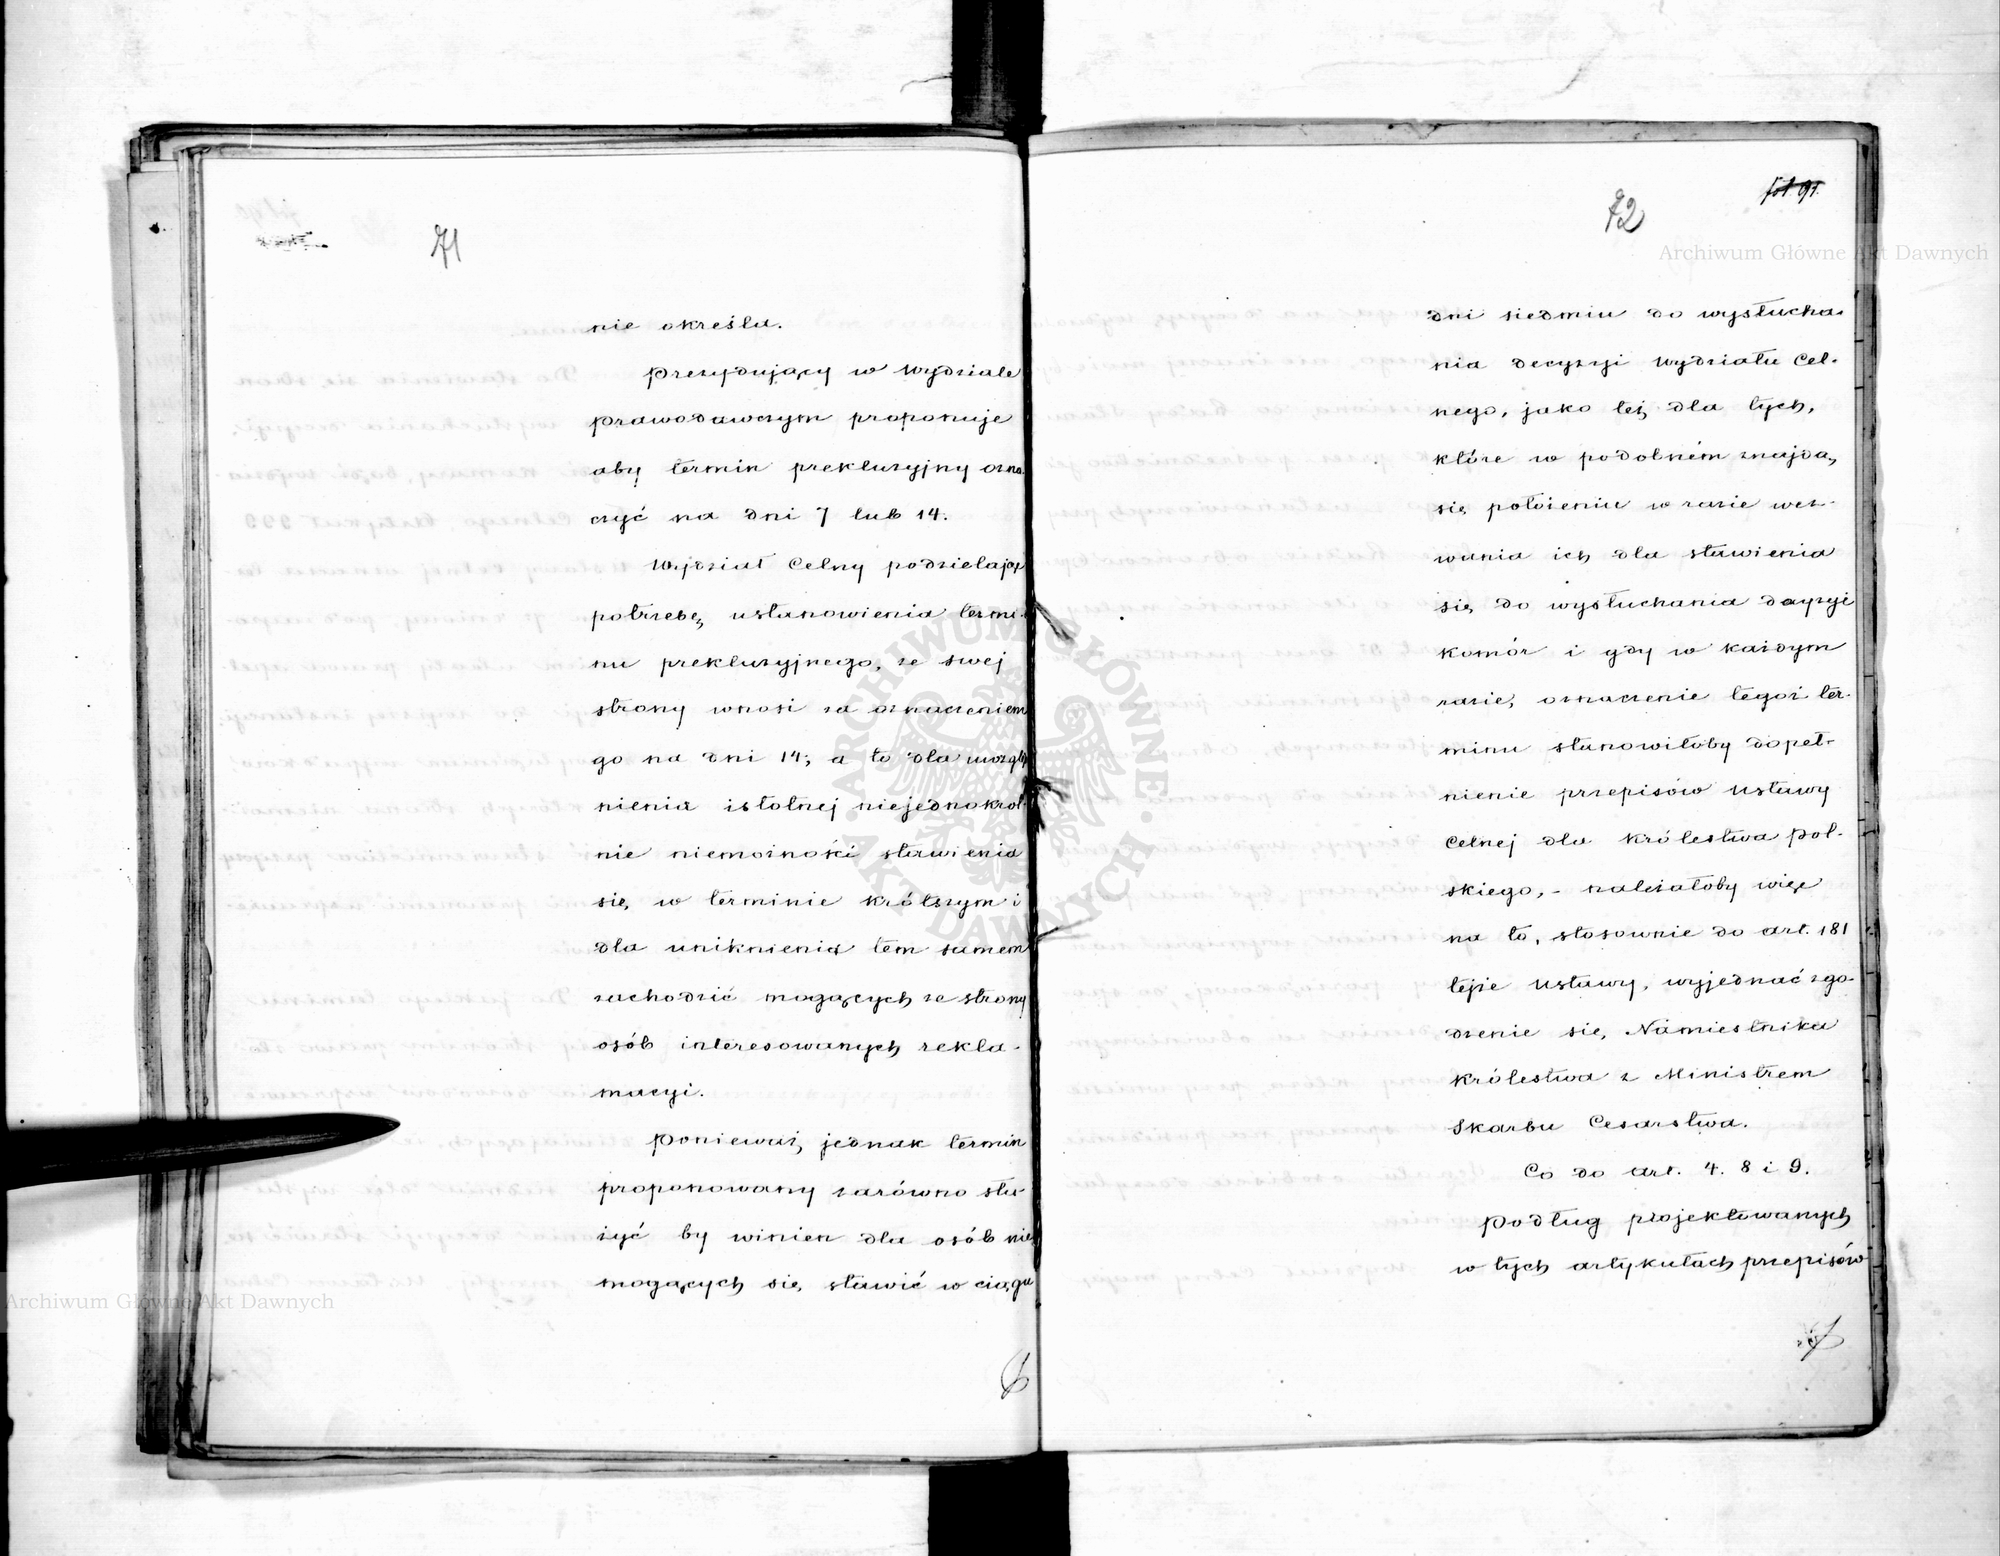 71
nie określa.
Prezydujący w Wydziale
Prawodawczym proponuje
aby termin prekluzyjny ozna
czyć na dni 7 lub 14.
Wydział Celny podzielając
potrzebę ustanowienia termi-
nu prekluzyjnego, ze swej
strony wnosi za oznaczeniem
go na dni 14; a to dla uwzglę
nienia istotnej niejednokrot-
nie niemożności stawienia
się w terminie krótszym i
dla uniknienia tém samem
zachodzić mogących ze strony
osób interesowanych rekla-
macyi.
Ponieważ jednak termin
proponowany zarówno słu-
żyć by winien dla osób nie
mogących się stawić w ciągu
72
fol 91.
dni siedmiu do wysłucha-
nia decyzyi Wydziału Cel-
nego, jako też dla tych,
które w podobném znajdą
się położeniu w razie wez-
wania ich dla stawienia
się do wysłuchania decyzyi
Komór i gdy w każdym
razie, oznaczenie tegoż ter-
minu stanowiłoby dopeł-
nienie przepisów Ustawy
Celnej dla Królestwa Pol-
skiego, - należałoby więc
na to, stosownie do art. 181
tejże Ustawy, wyjednać zgo-
dzenie się Namiestnika
Królestwa z Ministrem
Skarbu Cesarstwa.
Co do art. 4. 8 i 9.
Podług projektowanych
w tych artykułach przepisów
Archiwum Główne Akt Dawnych
Archiwum Główne Akt Dawnych
ARCHIWUM GŁÓWNE AKT DAWNYCH